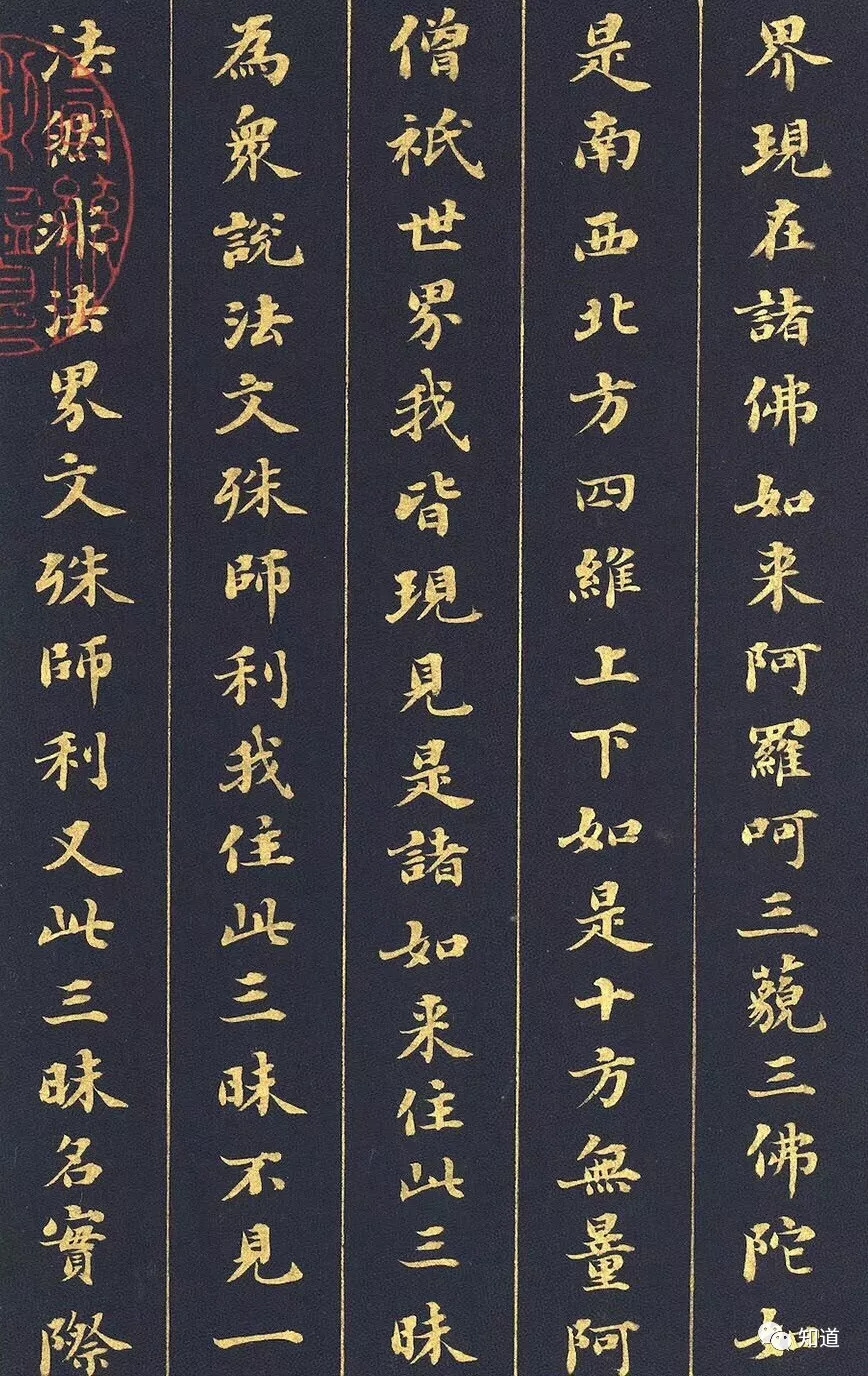 界現在諸佛如来阿羅呵三藐三佛陀如
是南西北方四維上下如是十方無量阿
僧祇世界我皆現見是諸如来住此三昧
為衆說法文殊師利我住此三昧不見一
法然非法界文殊師利又此三昧名實際
知道